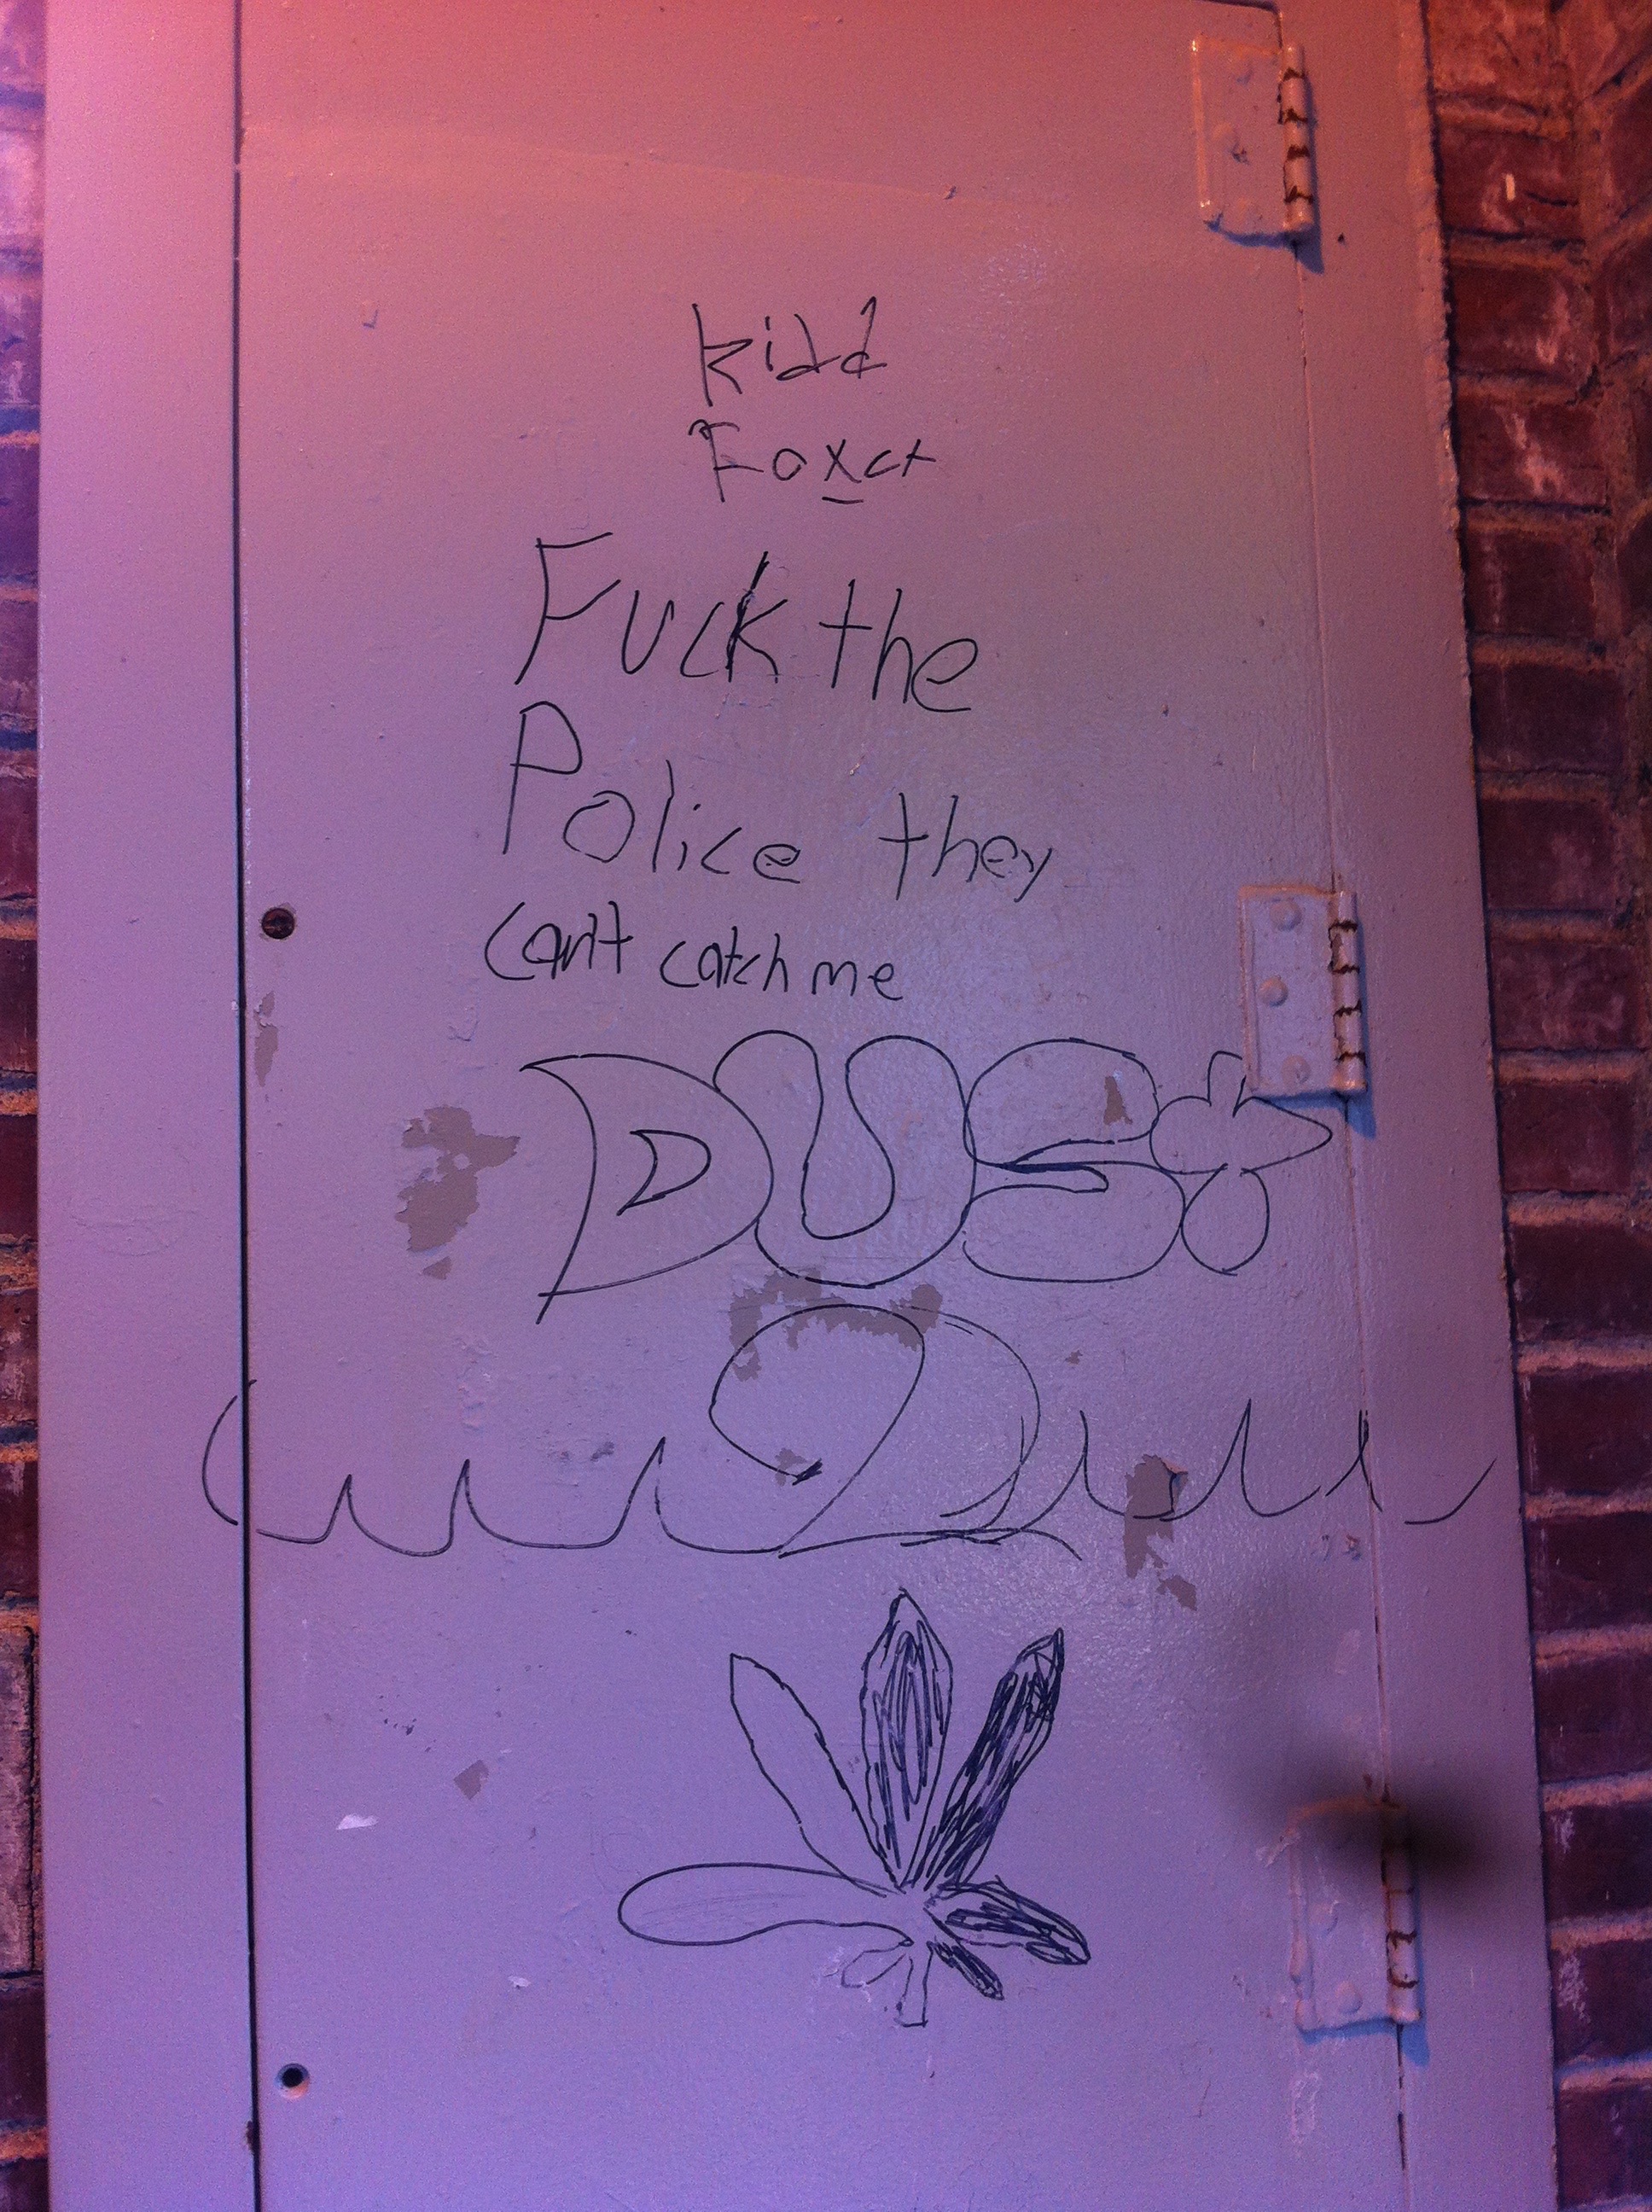 kidd
Fuck the
Police they
can't catch me
DUSt